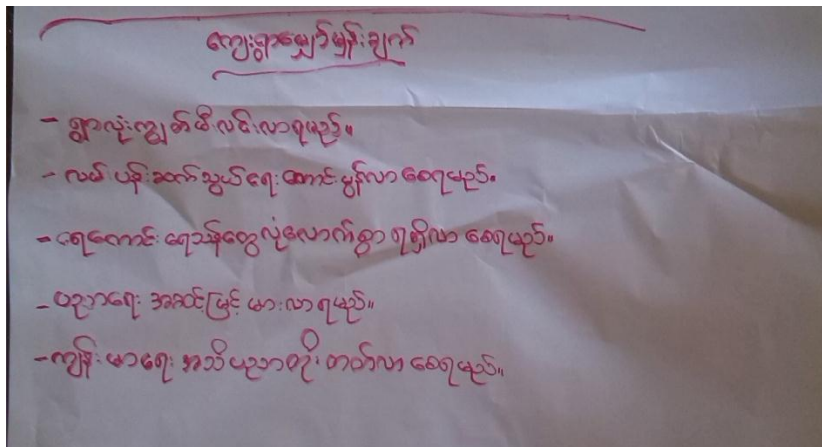 ကျေးရွာမျှော်မှန်းချက်
- ရွာလုံးကျွတ်မီးလင်းလာရမည်။
- လမ်းပန်းဆက်သွယ်ရေးကောင်းမွန်လာစေရမည်။
- ရေကောင်းရေသန့်တွေလုံလောက်စွာ ရရှိလာစေရမည်။
- ပညာရေး အဆင့်မြင့်မားလာရမည်။
- ကျန်းမာရေး အသိပညာတိုးတတ်လာစေရမည်။